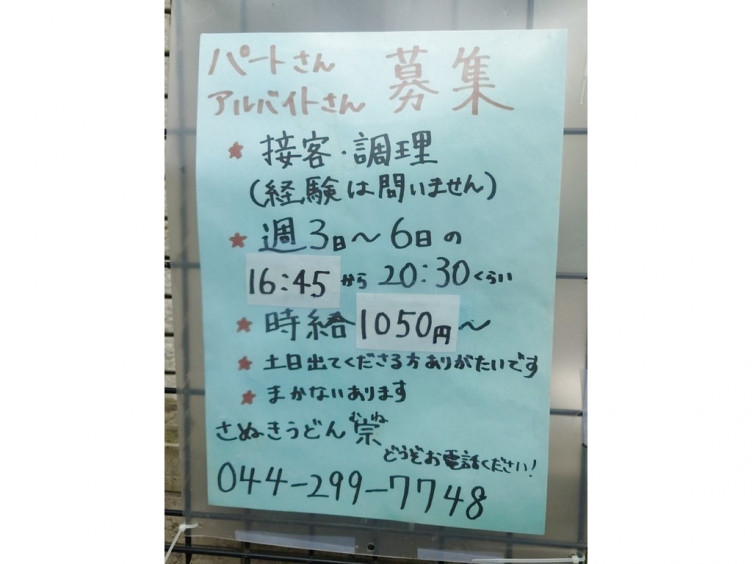 パートさん
アルバイトさん 募集
★ 接客・調理
(経験は問いません)
★ 週3日～6日の
16:45から20:30くらい
★ 時給1050円～
★ 土日出てくださる方ありがたいです
★ まかないあります
さぬきうどん 崇
むね
どうぞお電話ください!
044-299-7748